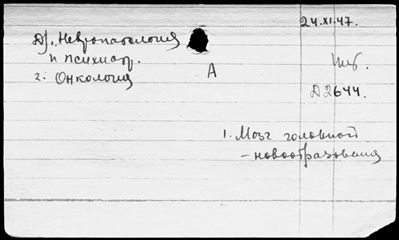 24.XI.47.
1. Невропатология
и психиатр.
2. Онкология
А
Д2644
1. Мозг головной
– новообразования